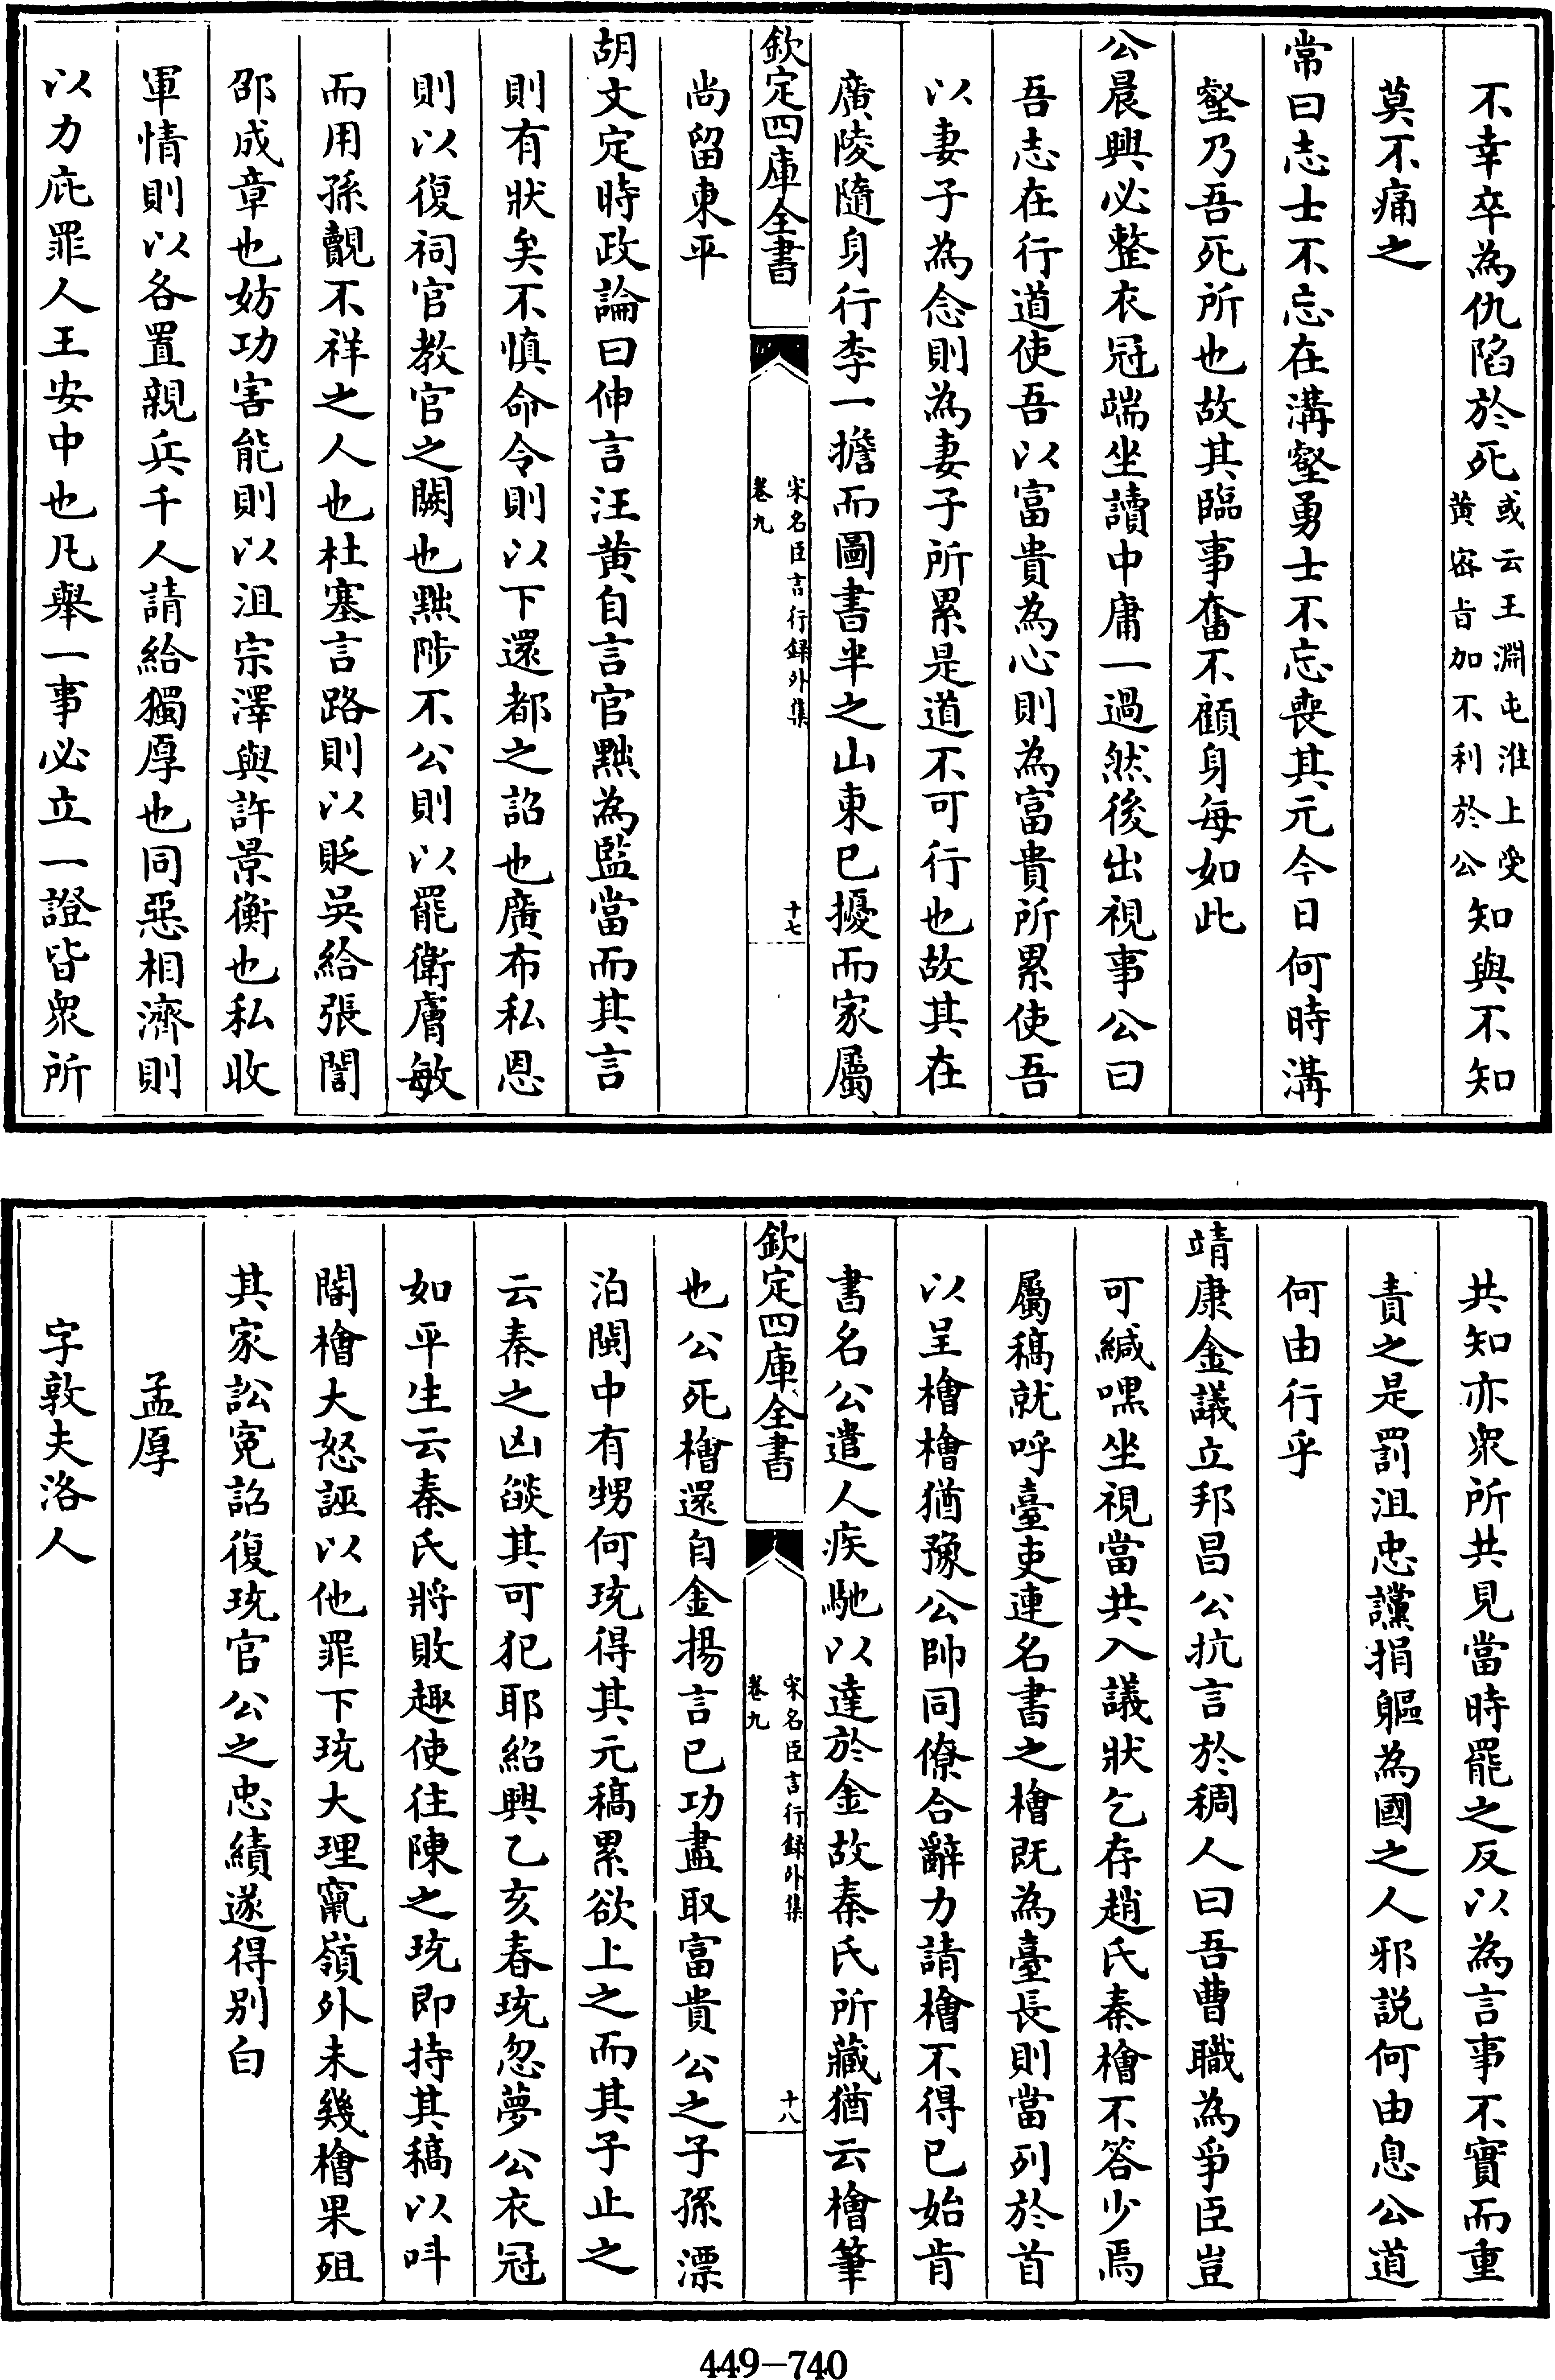 不幸卒為仇陷於死或云王淵屯淮上受黄宻㫖加不利於公知與不知
莫不痛之
常曰志士不忘在溝壑勇士不忘喪其元今日何時溝
壑乃吾死所也故其臨事奮不顧身每如此
公晨興必整衣冠端坐讀中庸一過然後出視事公曰
吾志在行道使吾以富貴為心則為富貴所累使吾
以妻子為念則為妻子所累是道不可行也故其在
廣陵隨身行李一擔而圖書半之山東已擾而家屬
欽定四庫全書
宋名臣言行録外集
卷九
十七
尚留東平
胡文定時政論曰伸言汪黄自言官黜為監當而其言
則有狀矣不慎命令則以下還都之詔也廣布私恩
則以復祠官教官之闕也黜陟不公則以罷衛膚敏
而用孫覿不祥之人也杜塞言路則以貶吳給張誾
邵成章也妨功害能則以沮宗澤與許景衡也私收
軍情則以各置親兵千人請給獨厚也同惡相濟則
以力庇罪人王安中也凡舉一事必立一證皆衆所
共知亦衆所共見當時罷之反以為言事不實而重
責之是罰沮忠讜捐軀為國之人邪説何由息公道
何由行乎
靖康金議立邦昌公抗言於稠人曰吾曹職為爭臣豈
可緘嘿坐視當共入議狀乞存趙氏秦檜不答少焉
屬稿就呼臺吏連名書之檜既為臺長則當列於首
以呈檜檜猶豫公帥同僚合辭力請檜不得已始肯
書名公遣人疾馳以達於金故秦氏所藏猶云檜筆
欽定四庫全書
宋名臣言行録外集
卷九
十八
也公死檜還自金揚言已功盡取富貴公之子孫漂
泊閩中有甥何珫得其元稿累欲上之而其子止之
云秦之凶燄其可犯耶紹興乙亥春珫忽夢公衣冠
如平生云秦氏將敗趣使往陳之珫即持其稿以呌
閽檜大怒誣以他罪下珫大理竄嶺外未幾檜果殂
其家訟寃詔復珫官公之忠績遂得别白
孟厚
字敦夫洛人
449-740